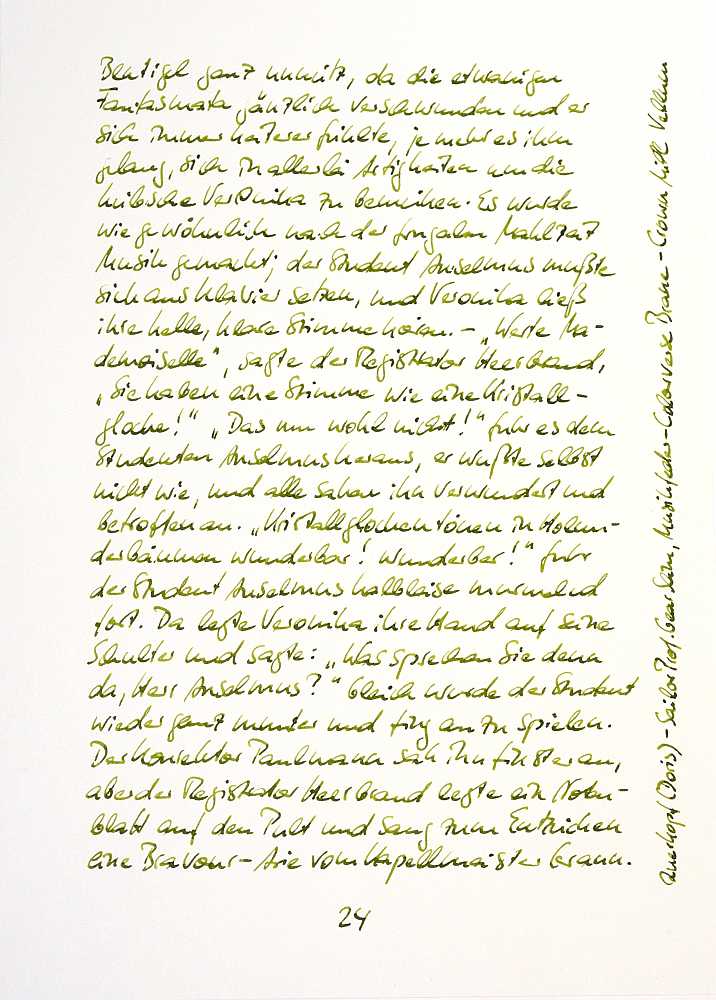 Blutigel ganz unnütz, da die etwanigen
Fantasmata gänzlich verschwunden und er
sich immer heiterer fühlte, je mehr es ihm
gelang, sich in allerlei Artigkeiten um die
hübsche Veronika zu bemühen. Es wurde
wie gewöhnlich nach der frugalen Mahlzeit
Musik gemacht; der Student Anselmus mußte
sich ans Klavier setzen, und Veronika ließ
ihre helle, klare Stimme hören. – „Werte Ma-
demoiselle“, sagte der Registrator Heerbrand,
„Sie haben eine Stimme wie eine Kristall-
glocke!“ „Das nun wohl nicht!“ fuhr es dem
Studenten Anselmus heraus, er wußte selbst
nicht wie, und alle sahen ihn verwundert und
betroffen an. „Kristallglocken tönen in Holun-
derbäumen wunderbar! wunderbar!“ fuhr
der Student Anselmus halbleise murmelnd
fort. Da legte Veronika ihre Hand auf seine
Schulter und sagte: „Was sprechen Sie denn
da, Herr Anselmus?“ Gleich wurde der Student
wieder ganz munter und fing an zu spielen.
Der Konrektor Paulmann sah ihn finster an,
aber der Registrator Heerbrand legte ein Noten-
blatt auf den Pult und sang zum Entzücken
eine Bravour-Arie vom Kapellmeister Graun.
24
(Doris) – Sailor Prof. Gear Slim, Musikfeder – Colorverse Brane – Crown Mill Vellum